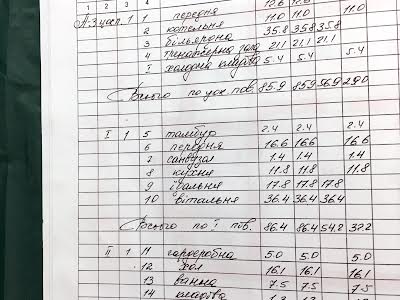 1 2 3 4
1 1 передня
2 котельня 11.0 11.0 11.0
3 більярдна 35.8 35.8 35.8
4 тренажерна зала 21.1 21.1 21.1
5 холодна кладова 5.4 5.4 5.4
Всього по цок. пов. 85.9 85.9 56.9 29.0
I 1 5 тамбур 2.4 2.4 2.4
6 передня 16.6 16.6 16.6
7 санвузол 1.4 1.4 1.4
8 кухня 11.8 11.8 11.8
9 їдальня 17.8 17.8 17.8
10 вітальня 36.4 36.4 36.4
Всього по I пов. 86.4 86.4 54.2 32.2
II 1 11 гардеробна 5.0 5.0 5.0
12 хол 16.1 16.1 16.1
13 ванна 7.5 7.5 7.5
14 кладова